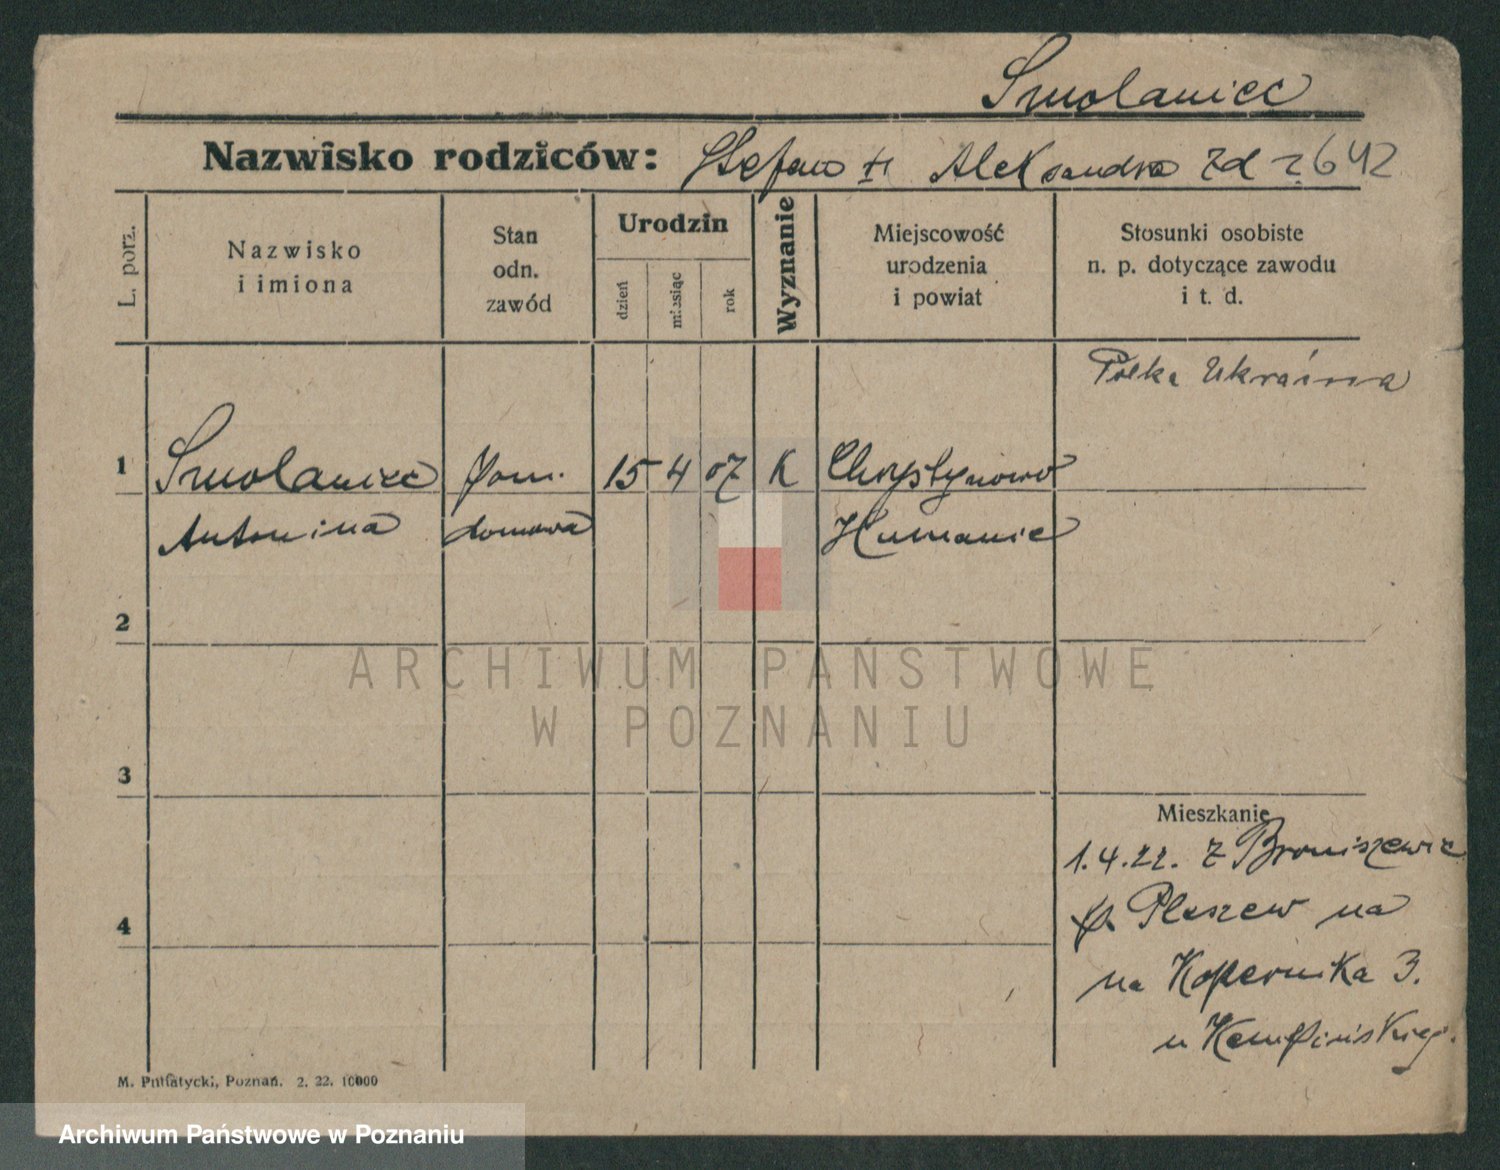 Smolaniec
Nazwisko rodziców: Stefan Aleksandra Zd 2642
L. porz.
Nazwisko
i imiona
Stan
odn.
zawód
Urodzin
dzień
miesiąc
rok
Wyznanie
Miejscowość
urodzenia
i powiat
Stosunki osobiste
n. p. dotyczące zawodu
i t. d.
Polka Ukraina
1 Smolaniec pom. 15 4 07 K Chrystynowo
Antonina domowa Humanie
2
3
4
Mieszkanie
1.4.22. z Broniszewic
p. Pleszew na
na Kopernika 3.
u Kempińskieg.
M. Putiatycki, Poznań. 2. 22. 10000
ARCHIWUM PAŃSTWOWE
W POZNANIU
Archiwum Państwowe w Poznaniu